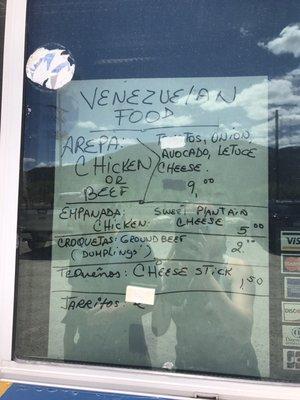 VENEZUELAN
FOOD
AREPA:
CHICKEN
OR
BEEF
ONION,
AVOCADO, LETUCE
CHEESE.
9.00
EMPANADA: SWEET PLANTAIN
CHICKEN: CHEESE 5.00
CROQUETAS: GROUND BEEF 2.00
(DUMPLINGS)
TEQUEÑOS: CHEESE STICK 1,50
JARRITOS: 2
VISA
DISCOVER
JCB